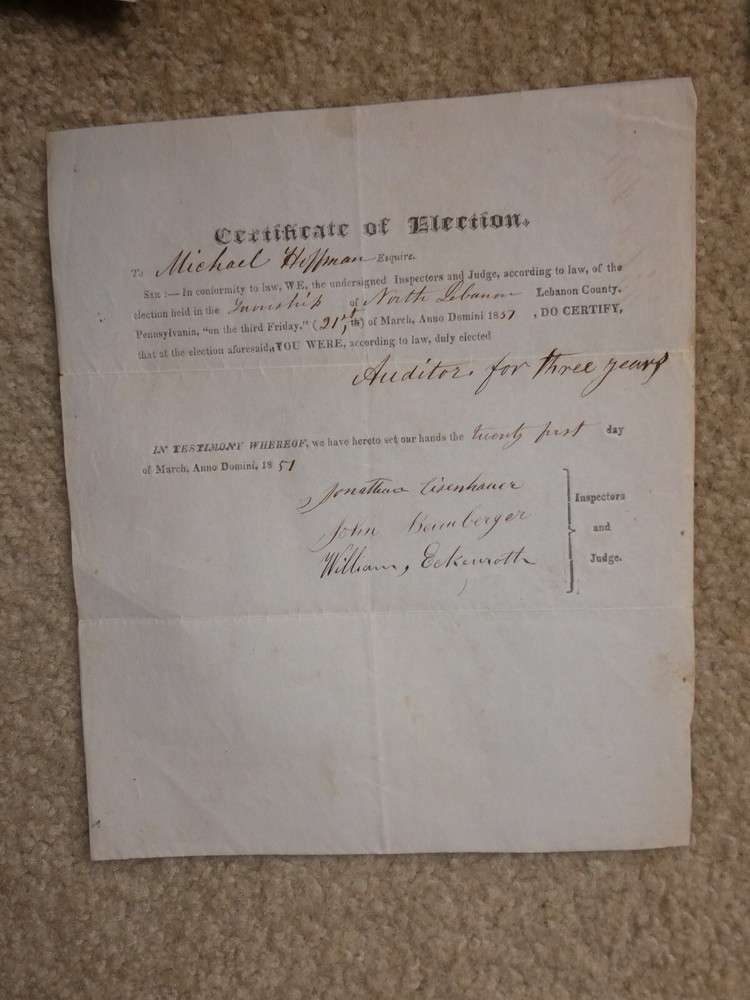 Certificate of Election.
To Michael Hoffman Esquire.
SIR :— In conformity to law, WE, the undersigned Inspectors and Judge, according to law, of the
election held in the Township of North Lebanon Lebanon County,
Pennsylvania, "on the third Friday," (21st th) of March, Anno Domini 1851 , DO CERTIFY,
that at the election aforesaid, YOU WERE, according to law, duly elected
Auditor, for three years
IN TESTIMONY WHEREOF, we have hereto set our hands the twenty first day
of March, Anno Domini, 1851
Jonathan Eisenhauer
John
William, Eckenroth
Inspectors
and
Judge.